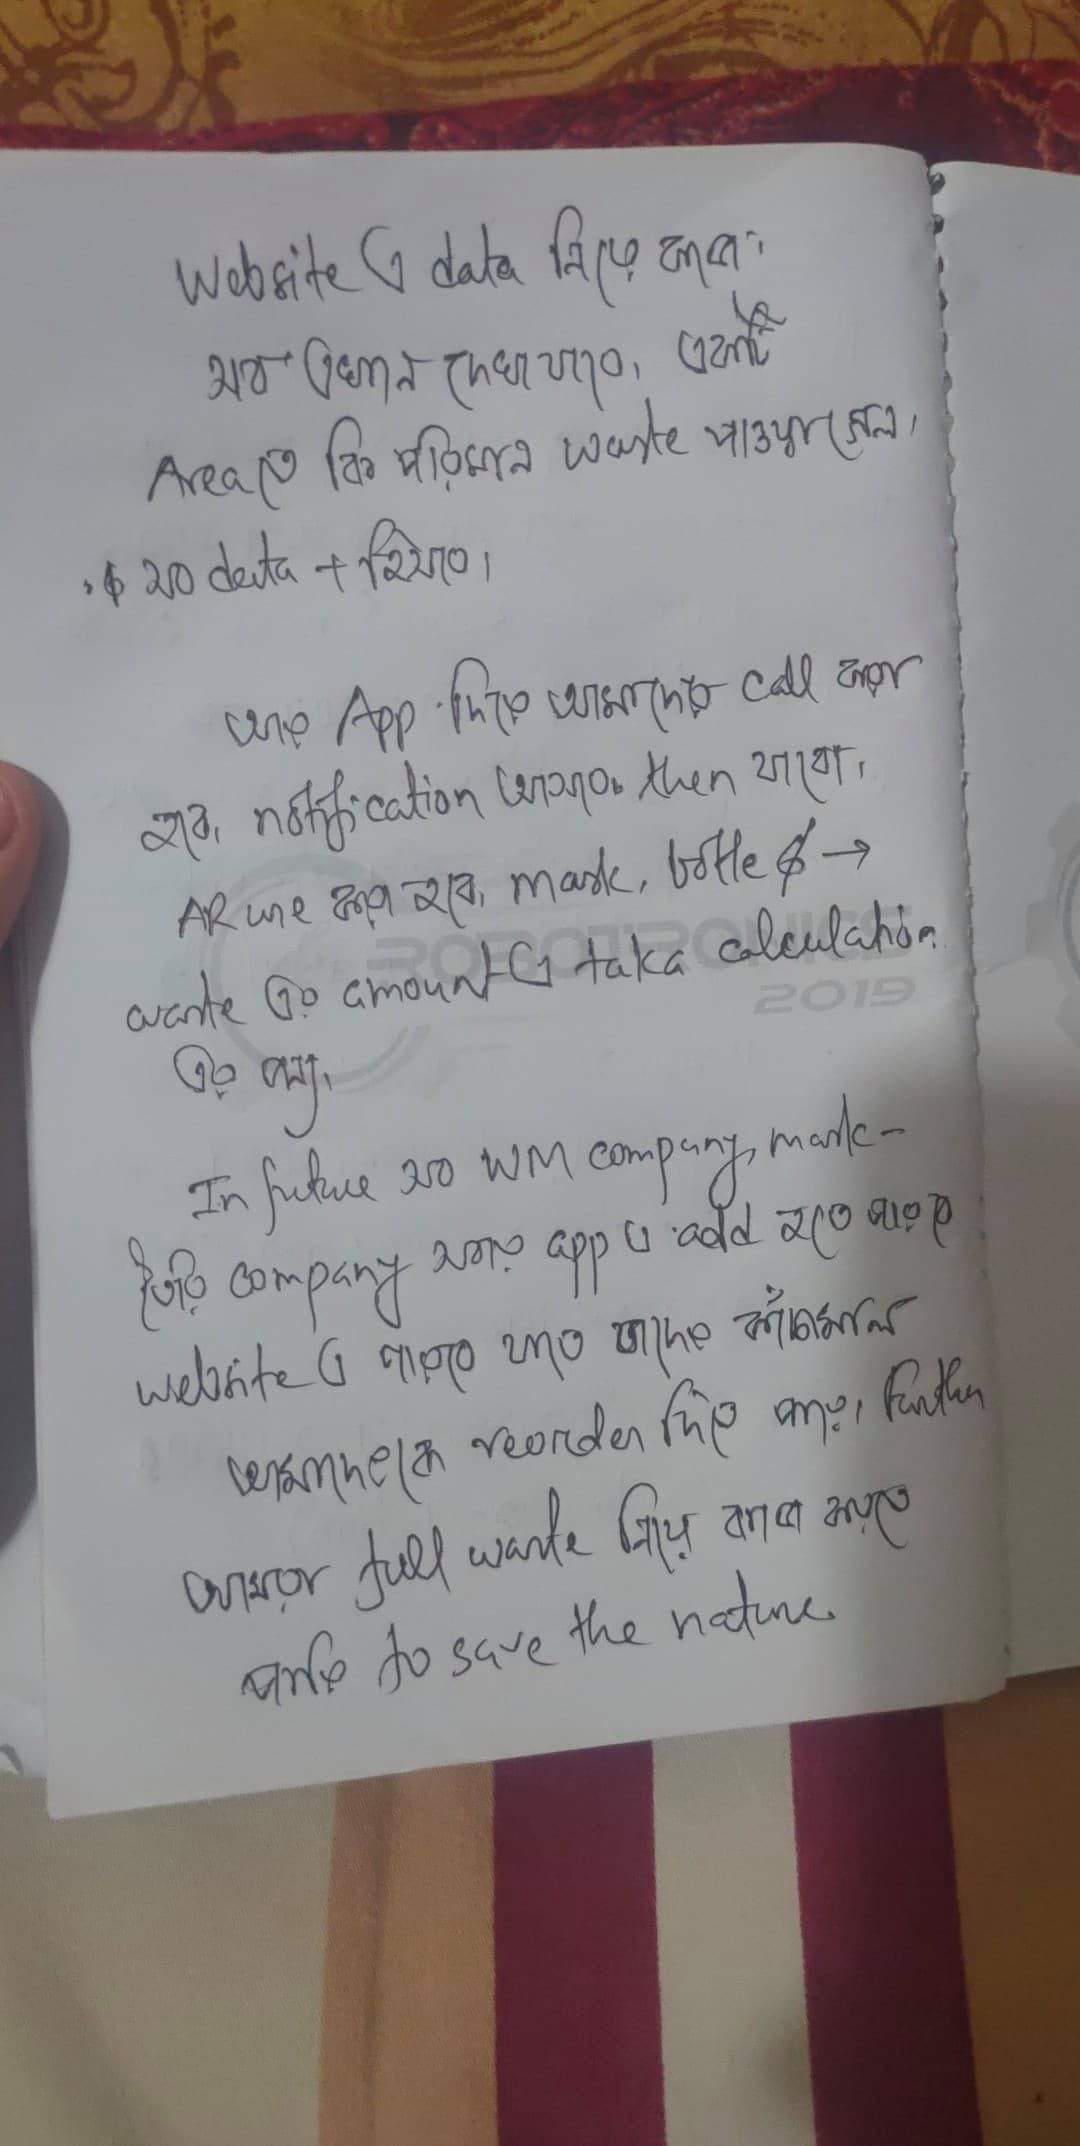 Website এ data নিয়ে কাজ।
সব এখানে দেখা যাবে, একটি
Area তে কি পরিমান waste পাওয়া গেল।
সব data + হিসাব।
আর App দিয়ে আমাদের call করা
হবে, notification আসবে then যাবো।
AR use করা হবে, mask, bottle →
waste এর amount এ taka calculation
এর জন্য।
In future সব WM company, mask-
তৈরি company সবাই app এ add হতে পারে
website এ পারবে যাতে তাদের কাঁচামাল
আমাদেরকে reorder দিতে পারে। Further
আমরা full waste নিয়ে কাজ করতে
পারি to save the nature.
ROBOTRONICS
2019